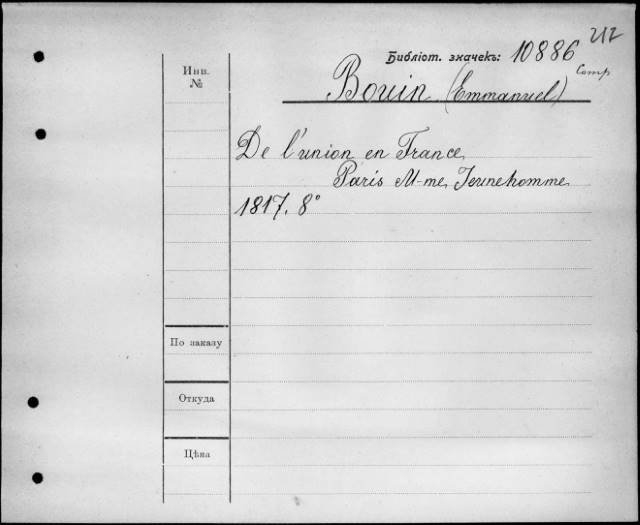 212
Библіот. значекъ: 10886
Comp
Инв.
№
Bouin (Emmanuel)
De l'union en France
Paris M-me Jeunehomme
1817. 8°
По заказу
Откуда
Цѣна